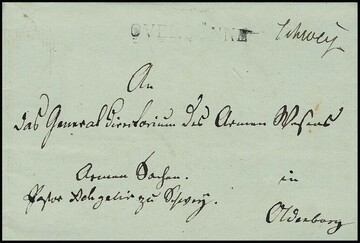 OVELGÖNNE Schwey
An
das General Directorium des Armen Wesens
Armen Sachen. in
Pastor zu Schwey. Oldenburg